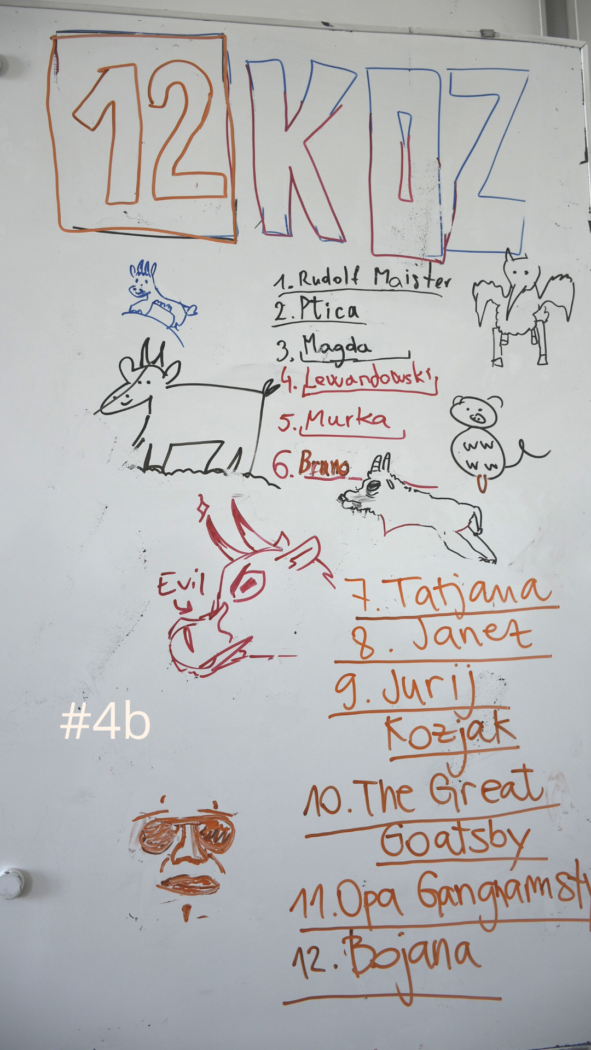 12 KOZ
1. Rudolf Maister
2. Ptica
3. Magda
4. Lewandowski
5. Murka
6. Bruno
Evil
7. Tatjana
8. Janez
9. Jurij
Kozjak
#4b
10. The Great
Goatsby
11. Opa Gangnamsty
12. Bojana